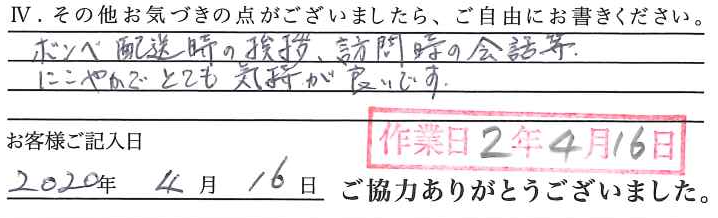 Ⅳ．その他お気づきの点がございましたら、ご自由にお書きください。
ボンベ配送時の挨拶、訪問時の会話等.
にこやかでとても気持が良いです.
作業日 2年4月16日
お客様ご記入日
2020年 4月 16日 ご協力ありがとうございました。